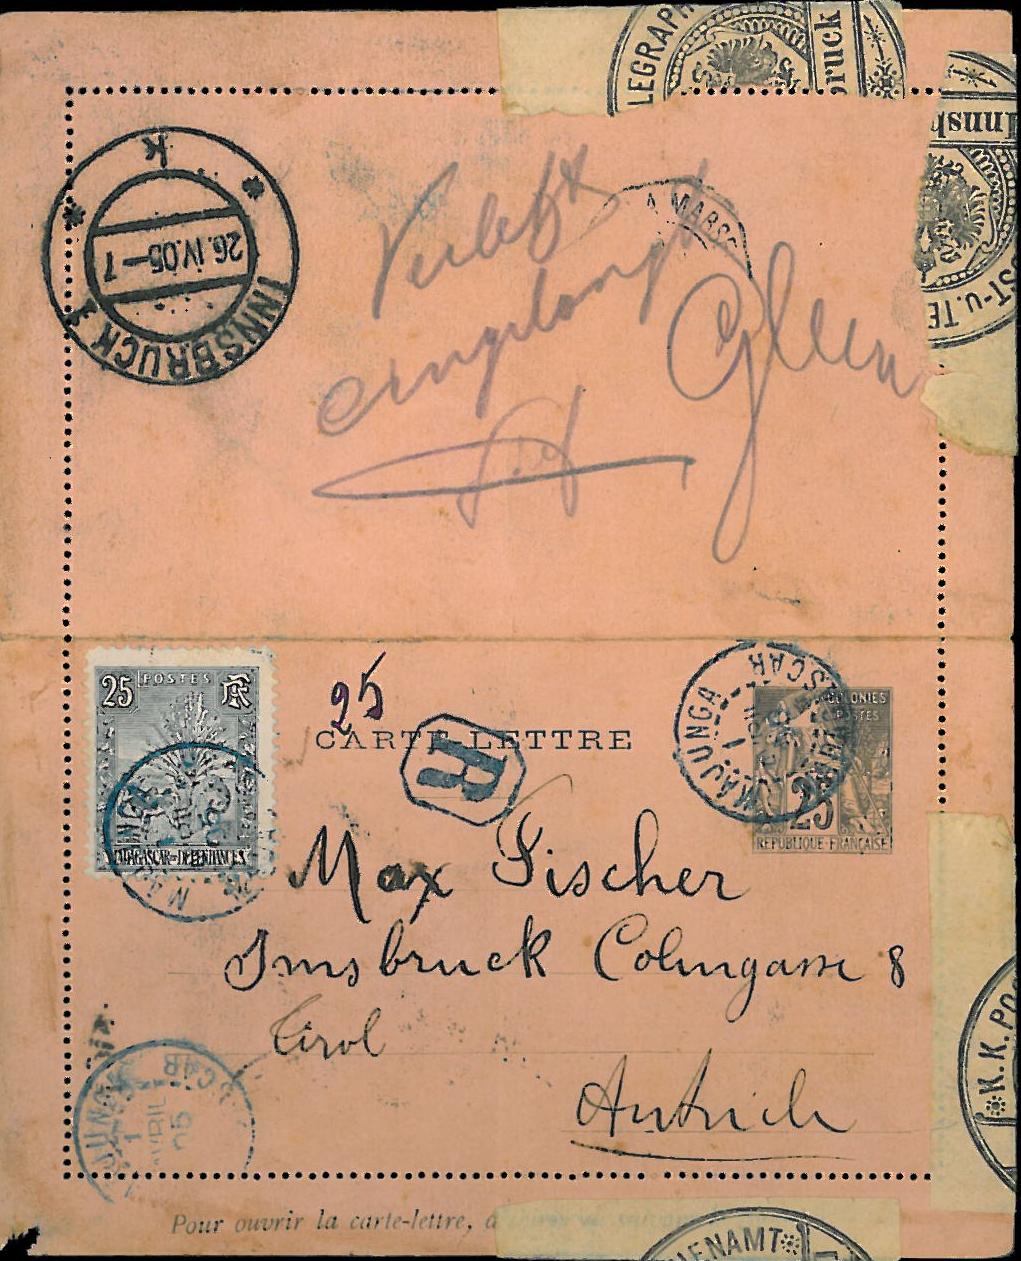 LEGRAPH
Innsbruck
ST-u.TE
k
26.IV.05-7
INNSBRUCK 3
Verletzt
eingelangt
A MARS
25 POSTES RF
MADAGASCAR ET DÉPENDANCES
25
CARTE-LETTRE
R
MAJUNGA
1
MADAGASCAR
COLONIES
POSTES
25
RÉPUBLIQUE FRANÇAISE
Max Fischer
Innsbruck Colingasse 8
Tirol
Autrich
JUNGA
1
AVRIL
05
SCAR
K.K.PO
Pour ouvrir la carte-lettre,
ENAMT